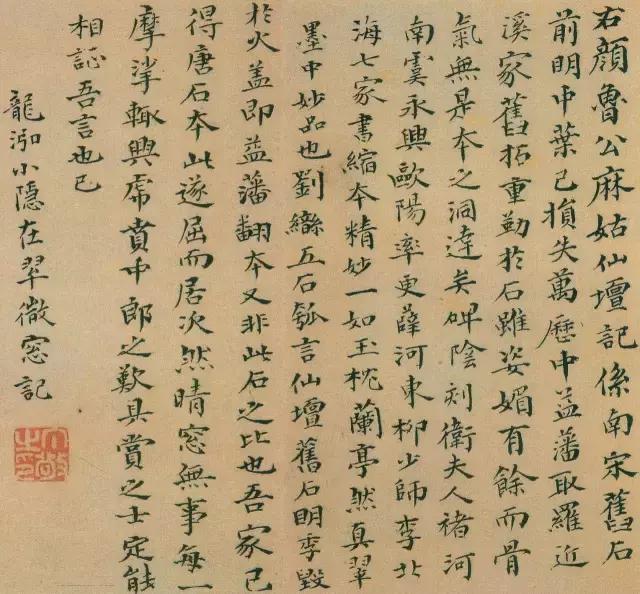 右顏魯公麻姑仙壇記係南宋舊石
前明中葉已損失萬歷中益藩取羅近
溪家舊拓重勒於石雖姿媚有餘而骨
氣無是本之洞達矣碑陰刻衛夫人褚河
南虞永興歐陽率更薛河東柳少師李北
海七家書縮本精妙一如玉枕蘭亭然真翠
墨中妙品也劉繼五石瓠言仙壇舊石明季毀
於火蓋即益藩翻本又非此石之比也吾家已
得唐石本此遂屈而居次然晴窓無事每一
摩挲輒興虎賁中郎之歎具賞之士定能
相誌吾言也已
龍泓小隱在翠微窓記